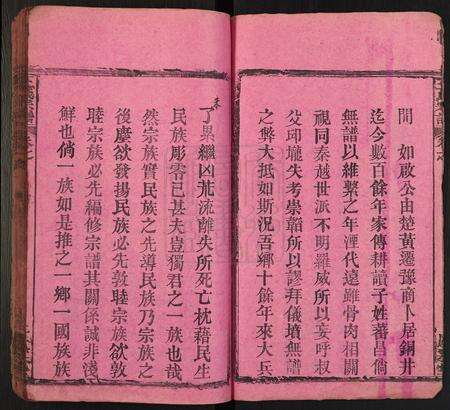 間 如啟公由楚黃遷豫商卜居銅井
迄今數百餘年家傳耕讀子姓蕃昌倘
無譜以維繫之年湮代遠雖骨肉相關
視同秦越世派不明羅威所以妄呼叔
父邱壠失考崇韜所以謬拜儀墳無譜
之弊大抵如斯況吾鄉十餘年來大兵
未了累繼凶荒流離失所死亡枕藉民生
民族彫零已甚夫豈獨君之一族也哉
然宗族實民族之先導民族乃宗族之
後塵欲發揚民族必先敦睦宗族欲敦
睦宗族必先編修宗譜其關係誠非淺
鮮也倘一族如是推之一鄉一國族族